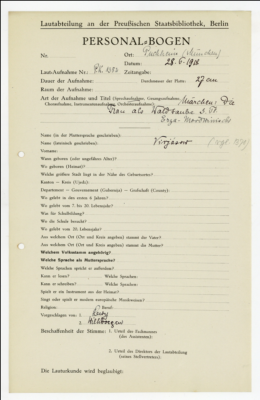 Lautabteilung an der Preußischen Staatsbibliothek, Berlin
PERSONAL-BOGEN
Nr. Ort: Puchheim (München)
Datum: 28.6.1918
Laut-Aufnahme Nr.: Zeitangabe:
Dauer der Aufnahme: Durchmesser der Platte: 27 cm
Raum der Aufnahme:
Art der Aufnahme und Titel (Sprechaufnahme, Gesangsaufnahme, Märchen: Die
Choraufnahme, Instrumentenaufnahme, Orchesteraufnahme):
Frau als Waldtaube
Erza-Mordwinisch
Name (in der Muttersprache geschrieben):
Name (lateinisch geschrieben):
Vorname:
Wann geboren (oder ungefähres Alter)?
Wo geboren (Heimat)?
Welche größere Stadt liegt in der Nähe des Geburtsortes?
Kanton — Kreis (Ujezd):
Department — Gouvernement (Gubernija) — Grafschaft (County):
Wo gelebt in den ersten 6 Jahren?
Wo gelebt vom 7. bis 20. Lebensjahr?
Was für Schulbildung?
Wo die Schule besucht?
Wo gelebt vom 20. Lebensjahr?
Aus welchem Ort (Ort und Kreis angeben) stammt der Vater?
Aus welchem Ort (Ort und Kreis angeben) stammt die Mutter?
Welchem Volksstamm angehörig?
Welche Sprache als Muttersprache?
Welche Sprachen spricht er außerdem?
Kann er lesen? Welche Sprachen?
Kann er schreiben? Welche Sprachen?
Spielt er ein Instrument aus der Heimat?
Singt oder spielt er modern europäische Musikweisen?
Religion: Beruf:
Vorgeschlagen von: 1.
2.
Beschaffenheit der Stimme: 1. Urteil des Fachmannes
(des Assistenten):
2. Urteil des Direktors der Lautabteilung
(seines Stellvertreters):
Die Lauturkunde wird beglaubigt: